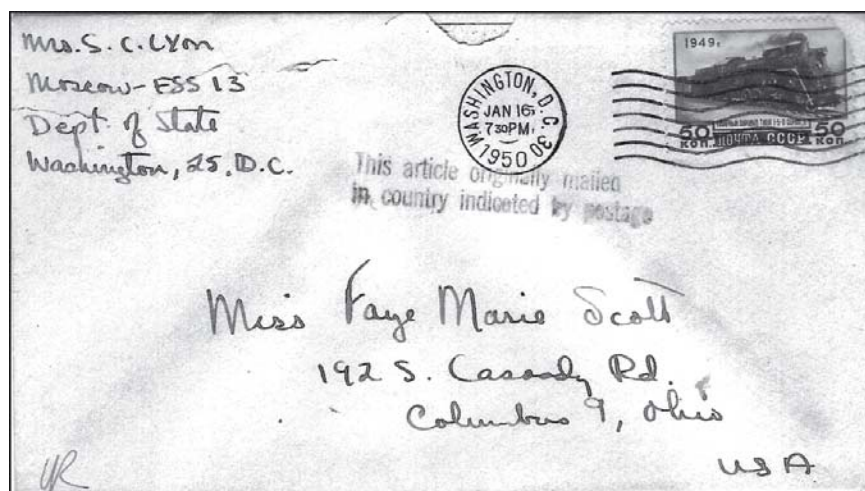 Mrs. S. C. Lyon
Moscow-ESS 13
Dept. of State
Washington, 25, D.C.
WASHINGTON, D.C. 30
JAN 16
730PM
1950
1949г
50 КОП. ПОЧТА СССР 50 КОП.
This article originally mailed
in country indicated by postage
Miss Faye Marie Scott
192 S. Cassady Rd.
Columbus 9, Ohio
USA